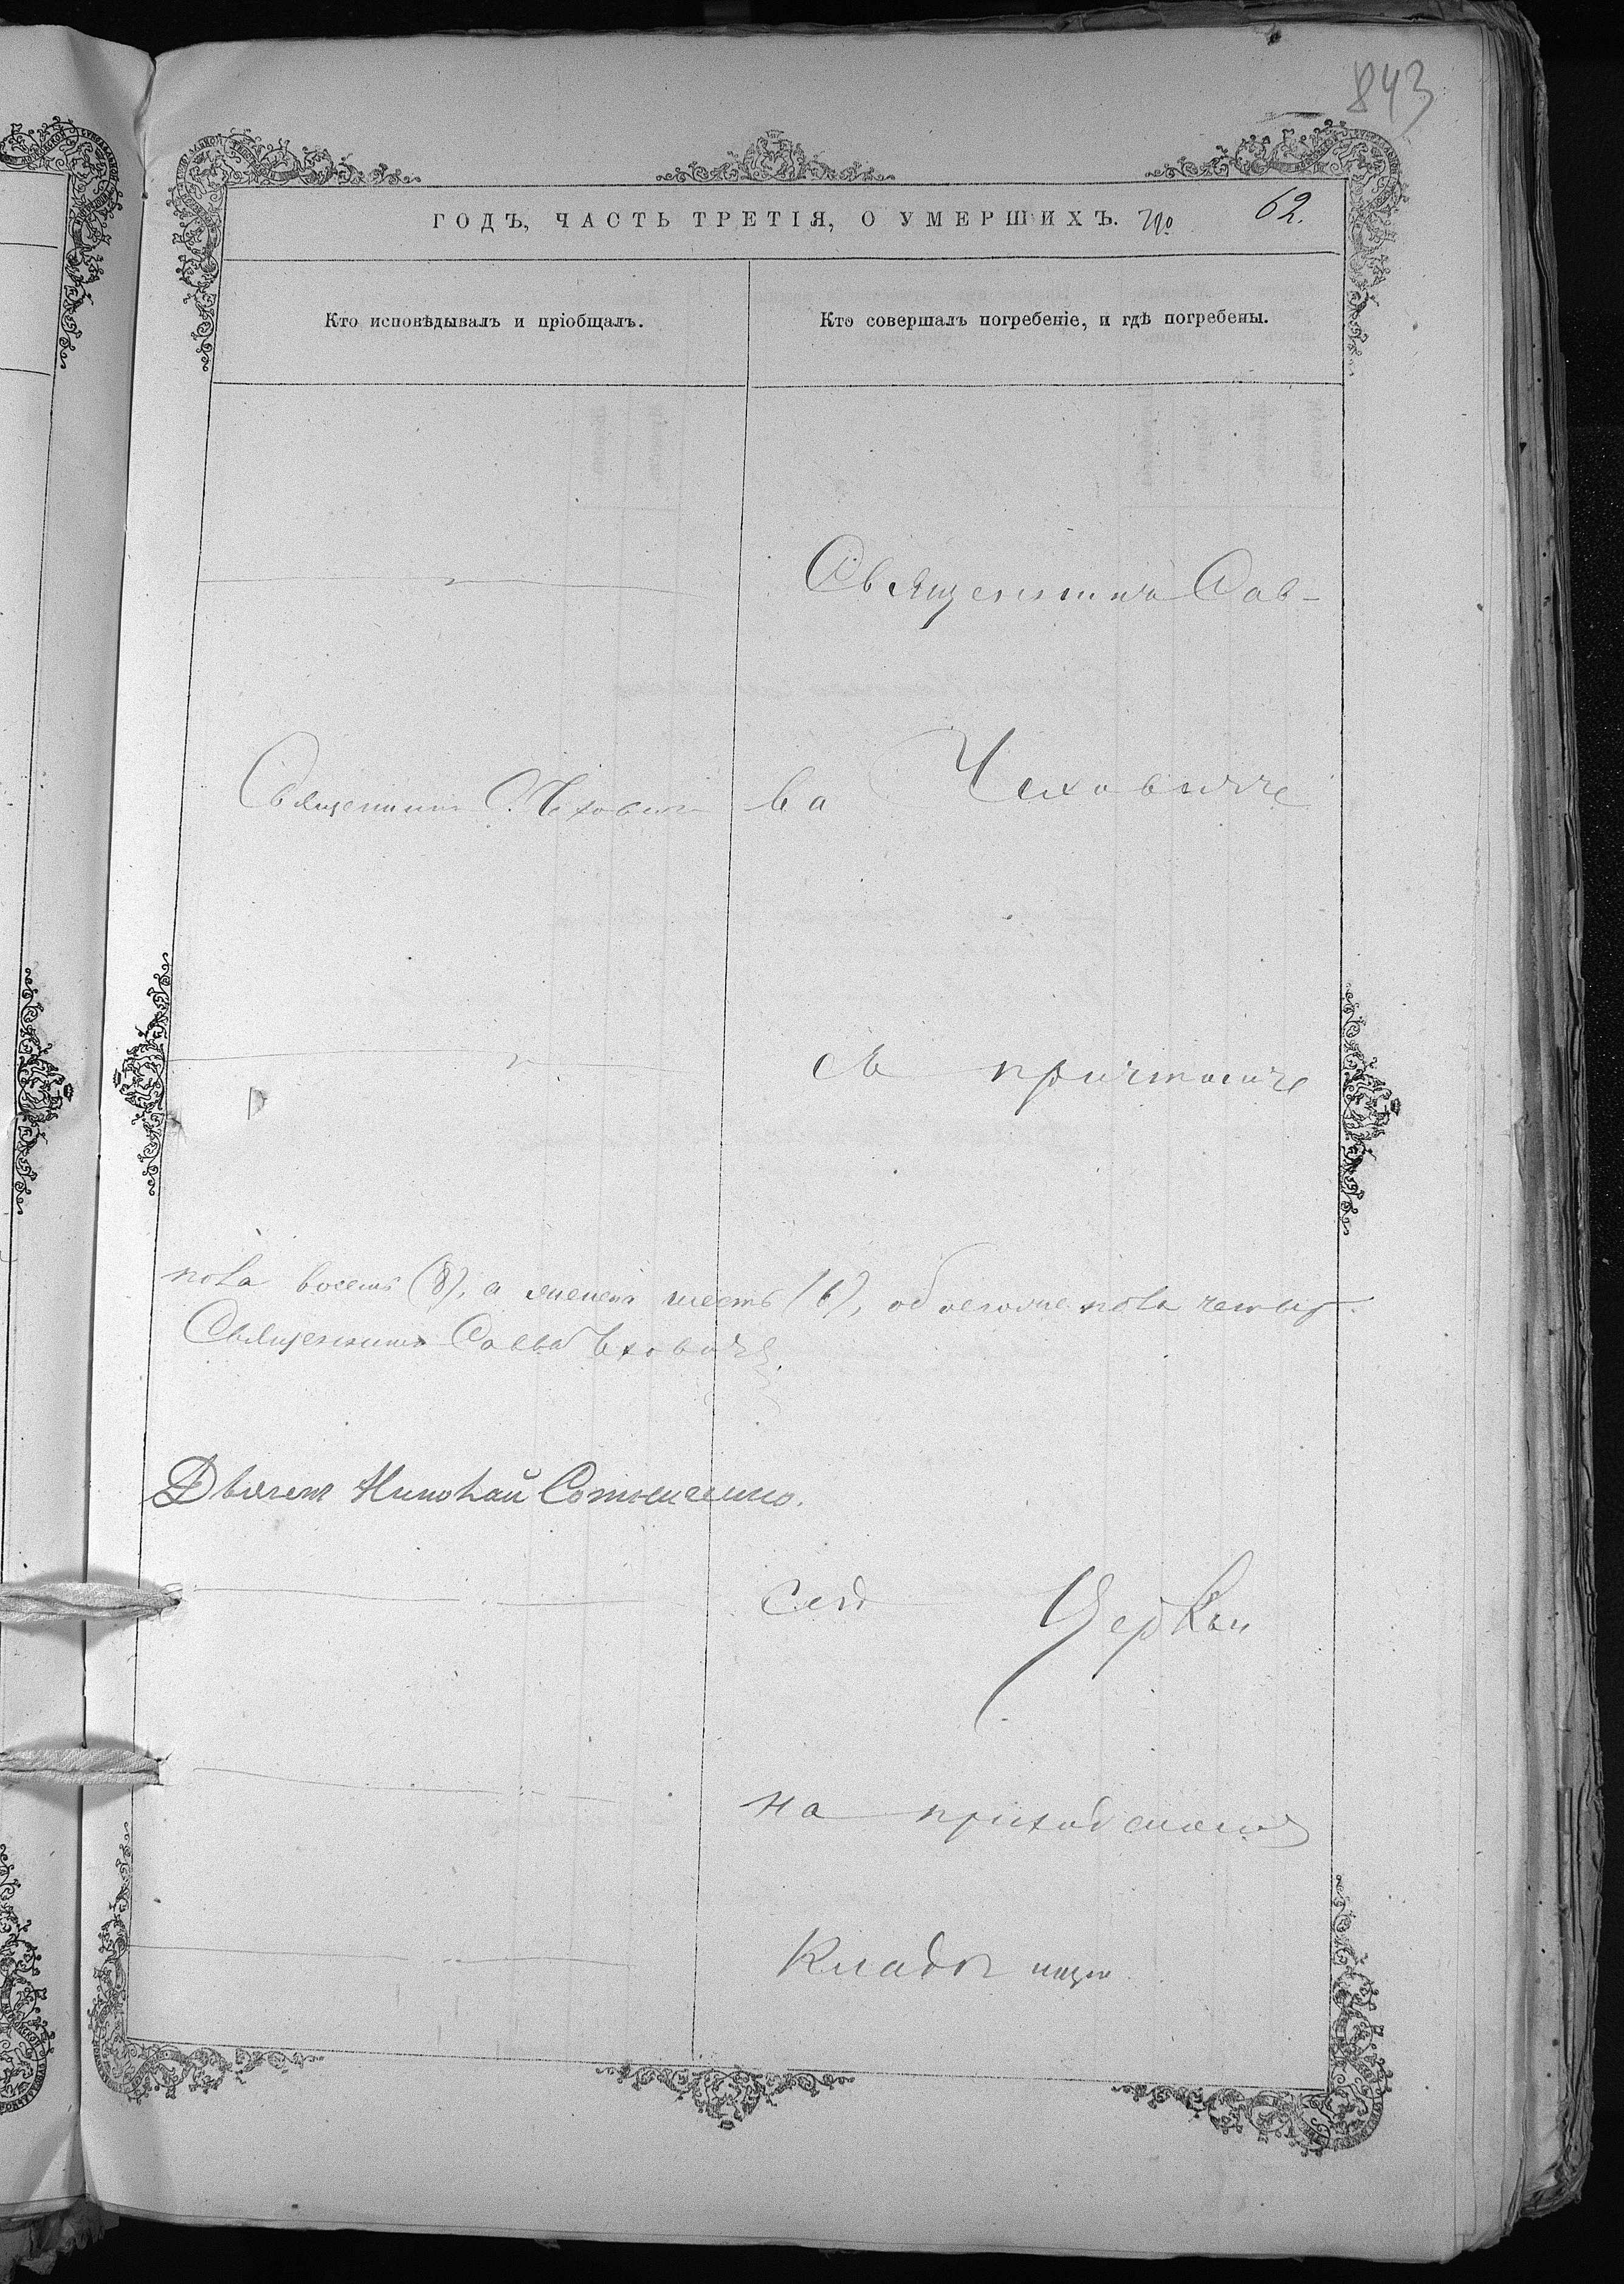 843
ГОДЪ, ЧАСТЬ ТРЕТІЯ, О УМЕРШИХЪ.
62.
Кто исповѣдывалъ и пріобщалъ.
Кто совершалъ погребеніе, и гдѣ погребены.
Священникъ Сав-
Священникъ С. Чеховичъ
ва Чеховичъ
съ причтомъ
пола восемь (8), а женска шесть (6), обоего пола четыр
Священникъ Савва Чеховичъ
Дьячекъ Николай
сей Церкви
на приходскомъ
Кладбищѣ